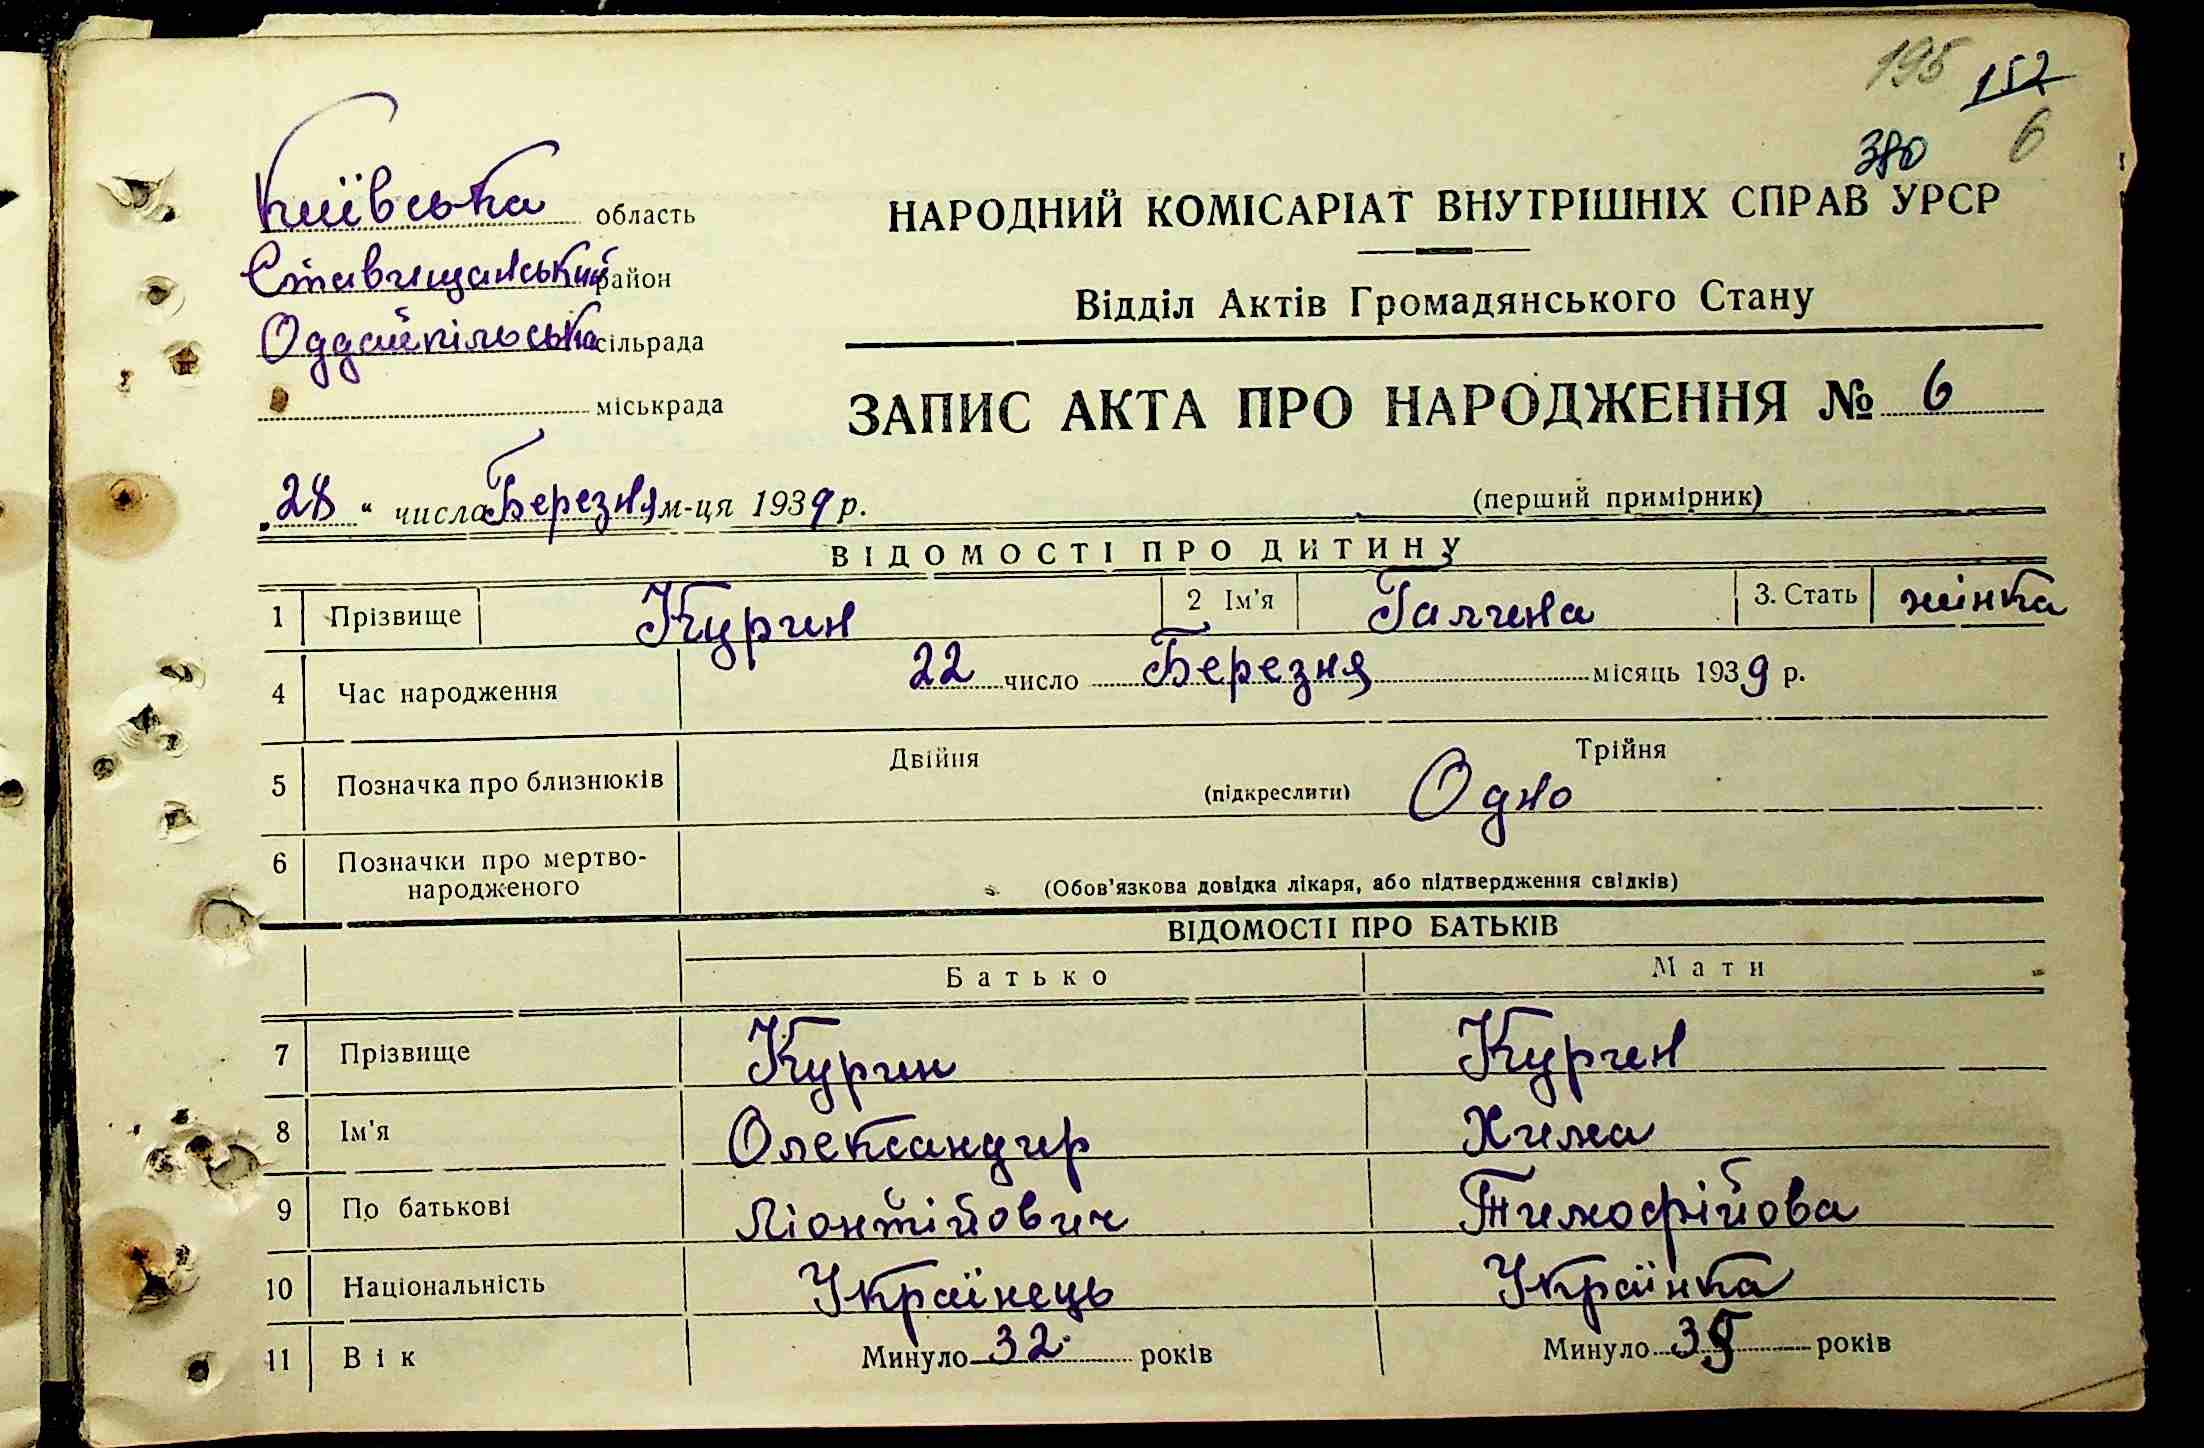 195 152
380 6
Київська область
Ставищанський район
Оддайпільська сільрада
міськрада
НАРОДНИЙ КОМІСАРІАТ ВНУТРІШНІХ СПРАВ УРСР
Відділ Актів Громадянського Стану
ЗАПИС АКТА ПРО НАРОДЖЕННЯ № 6
„28“ числа Березня м-ця 1939 р.
(перший примірник)
ВІДОМОСТІ ПРО ДИТИНУ
1 Прізвище Курин 2 Ім'я Галина 3. Стать жінка
4 Час народження 22 число Березня місяць 1939 р.
5 Позначка про близнюків Двійня (підкреслити) Трійня Одно
6 Позначки про мертво-
народженого (Обов'язкова довідка лікаря, або підтвердження свідків)
ВІДОМОСТІ ПРО БАТЬКІВ
Батько Мати
7 Прізвище Курин Курин
8 Ім'я Олександир Хима
9 По батькові Ліонтійович Тимофійова
10 Національність Українець Українка
11 Вік Минуло 32 років Минуло років